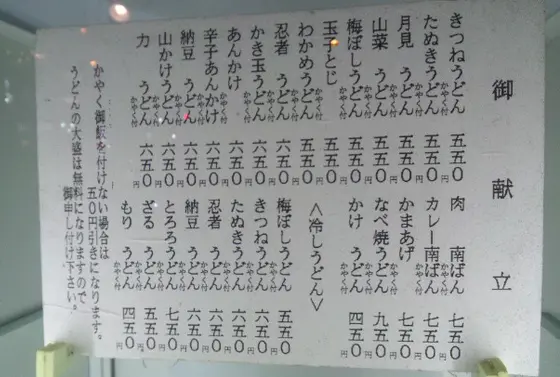 御献立
きつねうどん かやく付 五五0円
たぬきうどん かやく付 五五0円
月見 うどん かやく付 五五0円
山菜 うどん かやく付 五五0円
梅ぼしうどん かやく付 五五0円
玉子とじ かやく付 五五0円
わかめうどん かやく付 五五0円
忍者 うどん かやく付 六五0円
かき玉うどん かやく付 六五0円
あんかけ かやく付 六五0円
辛子あんかけ かやく付 六五0円
納豆 うどん かやく付 六五0円
山かけうどん かやく付 六五0円
力 うどん かやく付 六五0円
肉 南ばん かやく付 七五0円
カレー南ばん かやく付 七五0円
かまあげ かやく付 七五0円
なべ焼うどん かやく付 九五0円
かけ うどん かやく付 四五0円
＜冷しうどん＞
梅ぼしうどん かやく付 五五0円
きつねうどん かやく付 六五0円
たぬきうどん かやく付 六五0円
忍者 うどん かやく付 六五0円
納豆 うどん かやく付 六五0円
とろろうどん かやく付 七五0円
ざる うどん かやく付 五五0円
もり うどん かやく付 四五0円
かやく御飯を付けない場合は
五0円引きになります。
うどんの大盛は無料になりますので
御申し付け下さい。